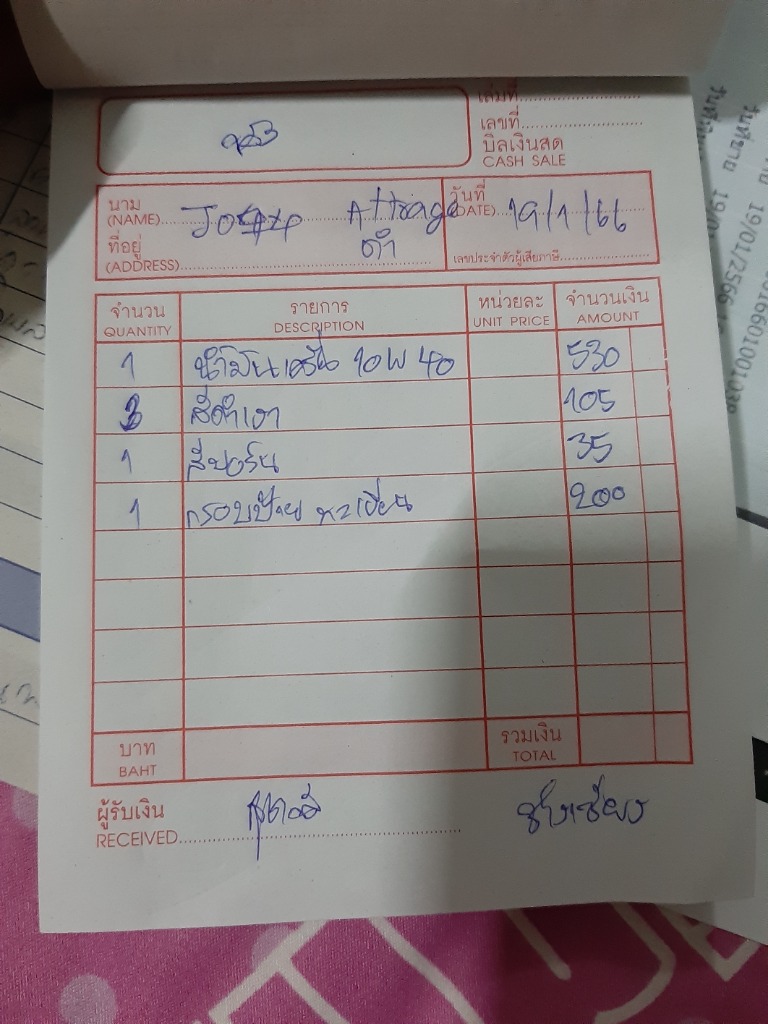 เล่มที่
เลขที่
บิลเงินสด
CASH SALE
นาม
(NAME) Attrage
วันที่
(DATE) 19/1/66
ที่อยู่
(ADDRESS) ดำ
เลขประจำตัวผู้เสียภาษี
จำนวน รายการ หน่วยละ จำนวนเงิน
QUANTITY DESCRIPTION UNIT PRICE AMOUNT
1 น้ำมันเครื่อง 10W 40 530
3 สีดำเงา 105
1 35
1 กรอบป้าย ทะเบียน 200
บาท รวมเงิน
BAHT TOTAL
ผู้รับเงิน
RECEIVED